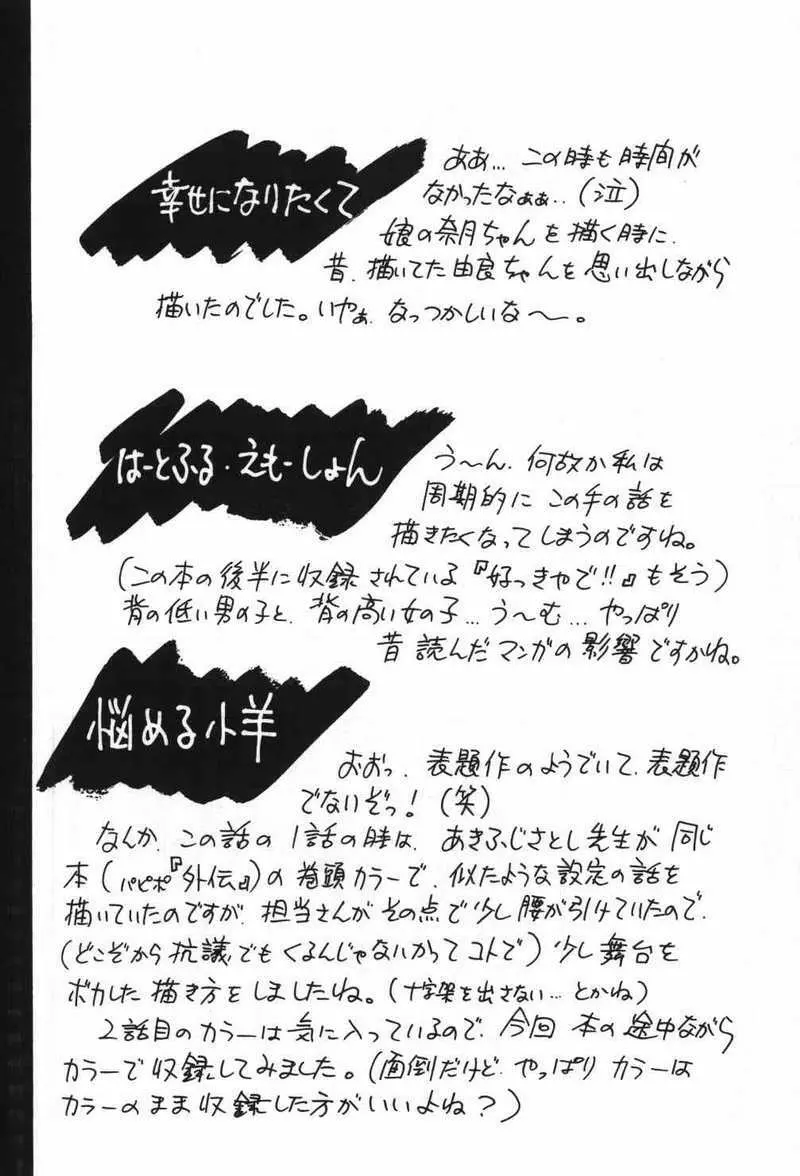 幸せになりたくて
ああ…この時も時間が
なかったなぁぁ..(泣)
娘の奈月ちゃんを描く時に、
昔、描いてた由良ちゃんを思い出しながら
描いたのでした。いやぁ、なっつかしいな〜。
はーとふる・えもーしょん
う〜ん、何故か私は
周期的にこの手の話を
描きたくなってしまうのですね。
(この本の後半に収録されている『好っきゃで!!』もそう)
背の低い男の子と、背の高い女の子…う〜む…やっぱり
昔読んだマンガの影響ですかね。
悩める小羊
おおっ、表題作のようでいて、表題作
でないぞっ!(笑)
なんか、この話の1話の時は、あきふじさとし先生が同じ
本(パピポ『外伝』)の巻頭カラーで、似たような設定の話を
描いていたのですが、担当さんがその点で少し腰が引けていたので、
(どこぞから抗議でもくるんじゃないかってコトで)少し舞台を
ボカした描き方をしましたね。(十字架を出さない…とかね)
2話目のカラーは気に入っているので、今回本の途中ながら
カラーで収録してみました。(面倒だけど、やっぱりカラーは
カラーのまま収録した方がいいよね?)